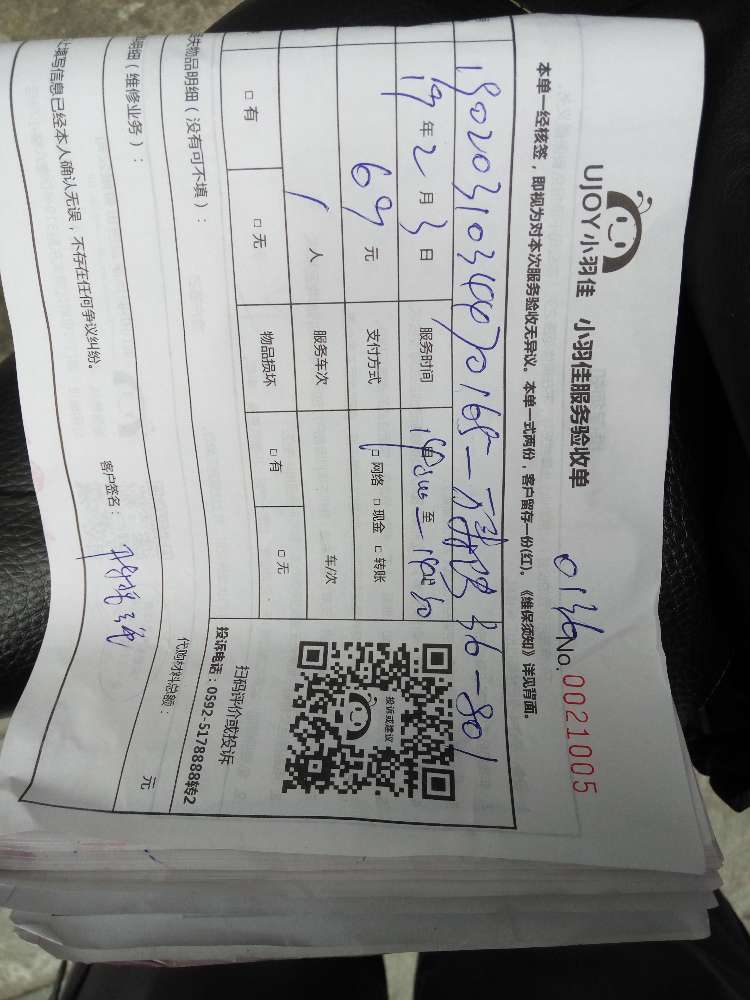 UJOY小羽佳 小羽佳服务验收单
No.0021005
本单一经核签，即视为对本次服务验收无异议。本单一式两份，客户留存一份(红)。《维保须知》详见背面。
36-801
19年2月3日 服务时间 至
69元 支付方式 □网络 □现金 □转账
1人 服务车次 车/次
□有 □无 物品损坏 □有 □无
投诉或建议
扫码评价或投诉
投诉电话：0592-5178888转2
失物品明细（没有可不填）：
明细（维修业务）： 代购材料总额： 元
填写信息已经本人确认无误，不存在任何争议纠纷。
客户签名：